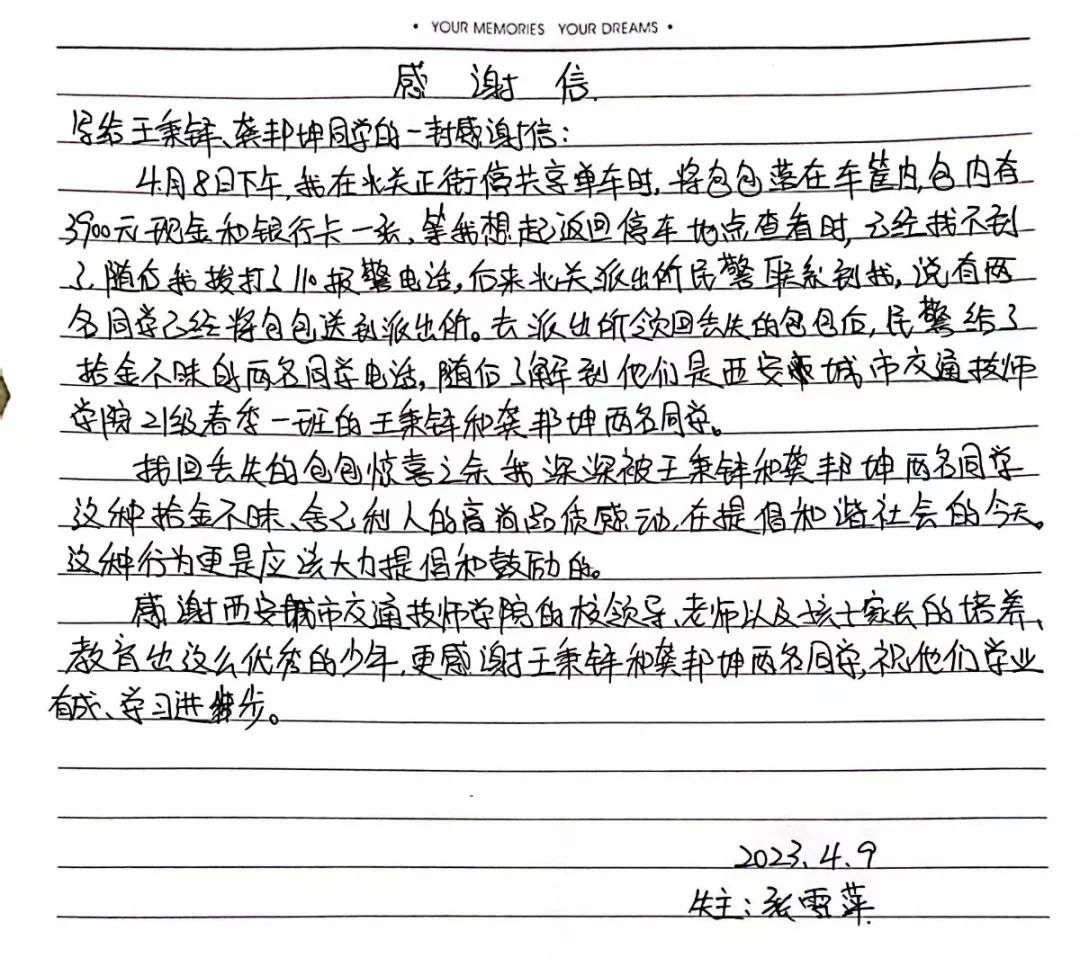 • YOUR MEMORIES YOUR DREAMS •
感 谢 信
写给王秉铎、龚邦坤同学的一封感谢信:
4月8日下午,我在北关正街停共享单车时,将包包落在车筐内,包内有
3900元现金和银行卡一张,等我想起返回停车地点查看时,已经找不到
了,随后我拨打了110报警电话,后来北关派出所民警联系到我,说有两
名同学已经将包包送到派出所。去派出所领回丢失的包包后,民警给了
拾金不昧的两名同学电话,随后了解到他们是西安城市交通技师
学院21级春季一班的王秉铎和龚邦坤两名同学。
找回丢失的包包惊喜之余我深深被王秉铎和龚邦坤两名同学
这种拾金不昧、舍己利人的高尚品质感动,在提倡和谐社会的今天。
这种行为更是应该大力提倡和鼓励的。
感谢西安城市交通技师学院的校领导、老师以及孩子家长的培养、
教育出这么优秀的少年,更感谢王秉铎和龚邦坤两名同学,祝他们学业
有成、学习进步。
2023.4.9
失主:张雪萍